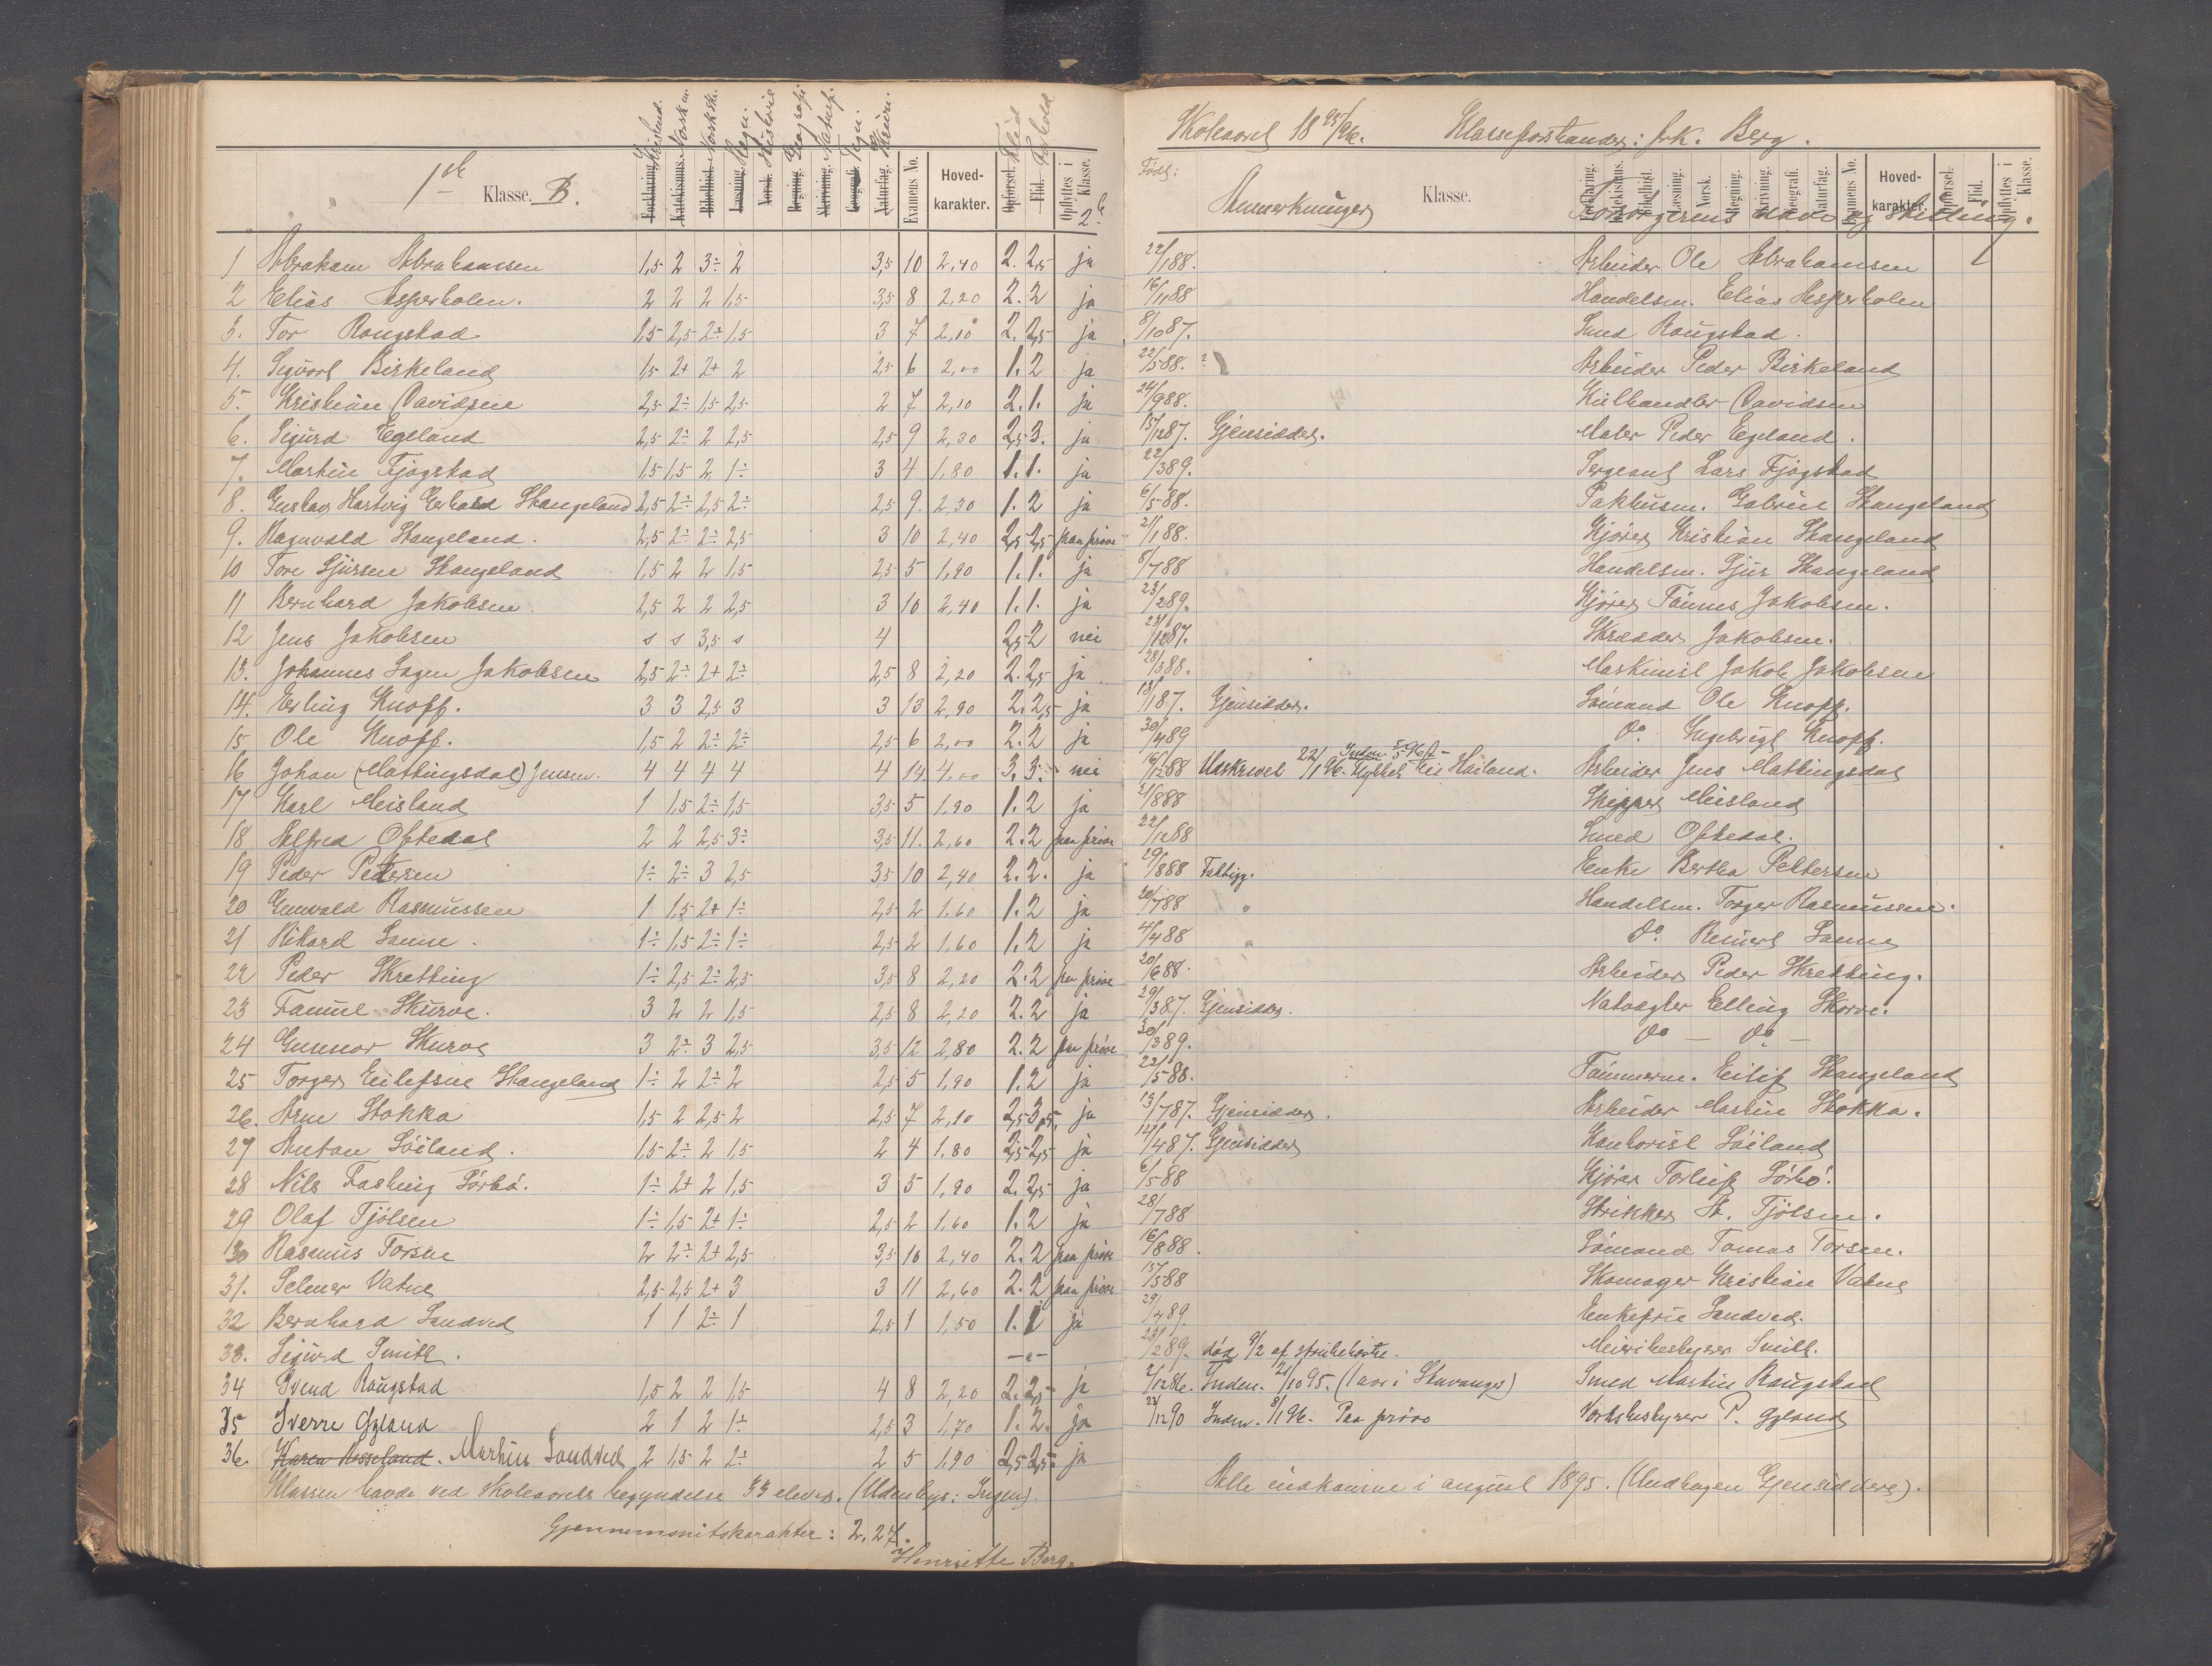 Kristend. Norsk m. Norsk sk. Regn. Historie Geografi Naturf. Tegn. Skrivn. Flid Forhold
1ste Klasse. B.
Forklaring. Katekismus. Bibelhist. Læsning. Norsk. Regning. Skrivning. Geografi. Naturfag. Examens No. Hoved-karakter. Opførsel. Flid. Opflyttes i 2. Klasse.
1 Abraham Abrahamsen 1,5 2 3÷ 2 3,5 10 2,40 2. 2,5 ja
2 Elias Asperholen. 2 2 2 1,5 3,5 8 2,20 2. 2 ja
3. Tor Raugstad 1,5 2,5 2÷ 1,5 3 7 2,10 2. 2,5 ja
4. Sigvart Birkeland 1,5 2+ 2+ 2 2,5 6 2,00 1. 2 ja
5. Kristian Davidsen 2,5 2÷ 1,5 2,5 2 7 2,10 2. 1. ja
6. Sigurd Egeland 2,5 2÷ 2 2,5 2,5 9 2,30 2,5 3. ja
7. Martin Fjogstad 1,5 1,5 2 1÷ 3 4 1,80 1. 1. ja
8. Gustav Hartvig Gerhard Skangeland 2,5 2÷ 2,5 2÷ 2,5 9. 2,30 1. 2 ja
9. Ragnvald Skangeland. 2,5 2÷ 2÷ 2,5 3 10 2,40 2,5 2,5 paa prøve
10 Tore Sjursen Skangeland 1,5 2 2 1,5 2,5 5 1,90 1. 1. ja
11 Bernhard Jakobsen. 2,5 2 2 2,5 3 10 2,40 1. 1. ja
12 Jens Jakobsen s s 3,5 s 4 2,5 2 nei
13. Johannes Sagen Jakobsen 2,5 2÷ 2+ 2÷ 2,5 8 2,20 2. 2,5 ja
14. Erling Knoff. 3 3 2,5 3 3 13 2,90 2. 2,5 ja
15 Ole Knoff. 1,5 2 2÷ 2÷ 2,5 6 2,00 2. 2 ja
16 Johan (Mattingsdal) Jensen. 4 4 4 4 4 14 4,00 3. 3. nei
17 Karl Meisland 1 1,5 2÷ 1,5 3,5 5 1,90 1. 2 ja
18 Alfred Oftedal 2 2 2,5 3÷ 3,5 11. 2,60 2. 2 paa prøve
19 Peder Petersen 1÷ 2÷ 3 2,5 3,5 10 2,40 2. 2. ja
20 Gunvald Rasmussen 1 1,5 2+ 1÷ 2,5 2 1,60 1. 2 ja
21 Rikard Sanne. 1÷ 1,5 2÷ 1÷ 2,5 2 1,60 1. 2 ja
22 Peder Skretting 1÷ 2,5 2÷ 2,5 3,5 8 2,20 2. 2 paa prøve
23 Samuel Skurve. 3 2 2 1,5 2,5 8 2,20 2. 2 ja
24 Gunnar Skurve 3 2÷ 3 2,5 3,5 12 2,80 2. 2 paa prøve
25 Torger Eilefsen Skangeland 1÷ 2 2÷ 2 2,5 5 1,90 1. 2 ja
26. Arne Stokka 1,5 2 2,5 2 2,5 7 2,10 2,5 3,5. ja
27 Anton Söiland. 1,5 2÷ 2 1,5 2 4 1,80 2,5 2,5 ja
28 Nils Fashing Sörbö. 1÷ 2+ 2 1,5 3 5 1,90 2. 2,5 ja
29 Olaf Tjölsen 1÷ 1,5 2+ 1÷ 2,5 2 1,60 1. 2 ja
30 Rasmus Torsen 2 2÷ 2+ 2,5 3,5 10 2,40 2. 2 paa prøve
31. Selmer Vatne 2,5 2,5 2+ 3 3 11 2,60 2. 2 paa prøve
32 Bernhard Sandved 1 1 2÷ 1 2,5 1 1,50 1. 1 ja
33. Sigurd Smith. —"—
34 Svend Raugstad 1,5 2 2 1,5 4 8 2,20 2. 2,5 ja
35 Sverre Gyland 2 1 2 1÷ 2,5 3 1,70 1. 2. ja
36. Karen Resseland. Martin Sandved 2 1,5 2 2÷ 2 5 1,90 2,5 2,5 ja
Klassen havde ved Skoleaarets begyndelse 33 elever. (Udenbys: Ingen).
Gjennemsnitskarakter: 2,27.
Henriette Berg.
Skoleaaret 1895/96. Klasseforstander: frk. Berg.
Født: Anmerkninger Klasse. Forsørgerens navn og stilling.
Forklaring. Katekismus. Bibelhist. Læsning. Norsk. Regning. Skrivning. Geografi. Naturfag. Examens No. Hoved-karakter. Opførsel. Flid. Opflyttes i Klasse.
22/1 88. Arbeider Ole Abrahamsen
16/11 88 Handelsm. Elias Asperholen
8/10 87. Smed Raugstad.
22/5 88. ? Arbeider Peder Birkeland
24/9 88. Kulhandler Davidsen
15/12 87. Gjensidder. Maler Peder Egeland.
22/3 89. Sergeant Lars Fjogstad
6/5 88. Pakhusm. Gabriel Skangeland
21/1 88. Kjører Kristian Skangeland
8/7 88 Handelsm. Sjur Skangeland
23/2 89. Kjører Tönnes Jakobsen.
23/12 87. Skrædder Jakobsen.
28/3 88. Maskinist Jakob Jakobsen
18/1 87. Gjensidder. Sömand Ole Knoff.
30/4 89 Do. Engebrigt Knoff.
16/12 88 Udskrevet 22/1 96. Flyttet til Höiland. Arbeider Jens Mattingsdal
21/8 88 Skipper Meisland
22/12 88 Smed Oftedal.
29/8 88 Fattigg. Enke Bertha Pettersen
20/7 88 Handelsm. Torger Rasmussen.
4/4 88 Do. Reinert Sanne
20/6 88. Arbeider Peder Skretting.
29/3 87. Gjensidder. Natvægter Elling Skorve.
30/3 89. Do — Do —
22/5 88. Tömmerm. Eilif Skangeland
13/7 87. Gjensidder. Arbeider Martin Stokka.
12/4 87. Gjensidder Kontorist Söiland
6/5 88 Kjører Torleif Sörbö.
28/7 88 Strikker St. Tjölsen.
16/8 88. Sömand Tomas Torsen.
15/5 88 Skomager Kristian Vatne
29/4 89. Enkefrue Sandved.
23/2 89. död 9/2 af strubehoste. Meieribestyrer Smith.
2/12 86. Indm. 21/10 95. (1 aar i Stavanger) Smed Martin Raugstad
23/12 90 Indm. 8/1 96. Paa prøve Værksbestyrer P. Gyland
Alle indkomne i august 1895. (Undtagen Gjensiddere).